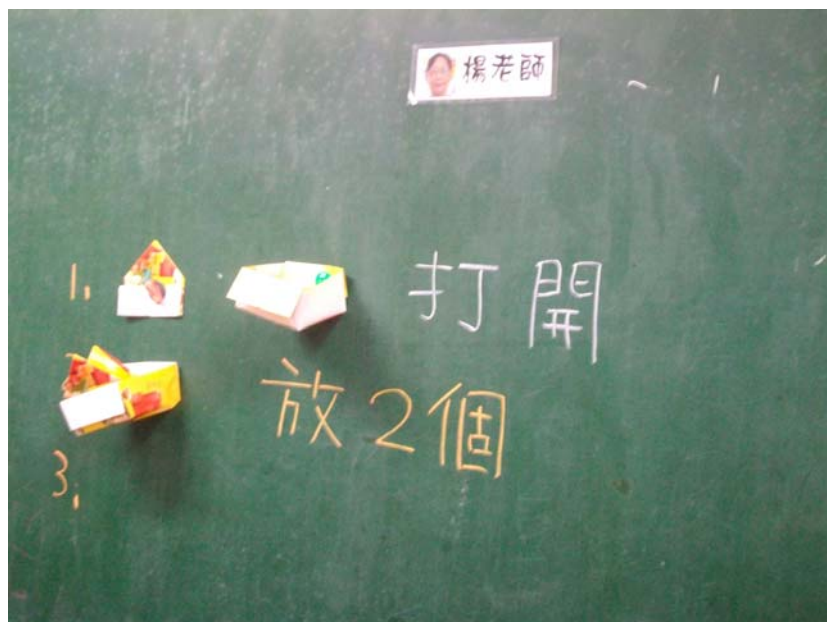 楊老師
1. 打開
放2個
3.